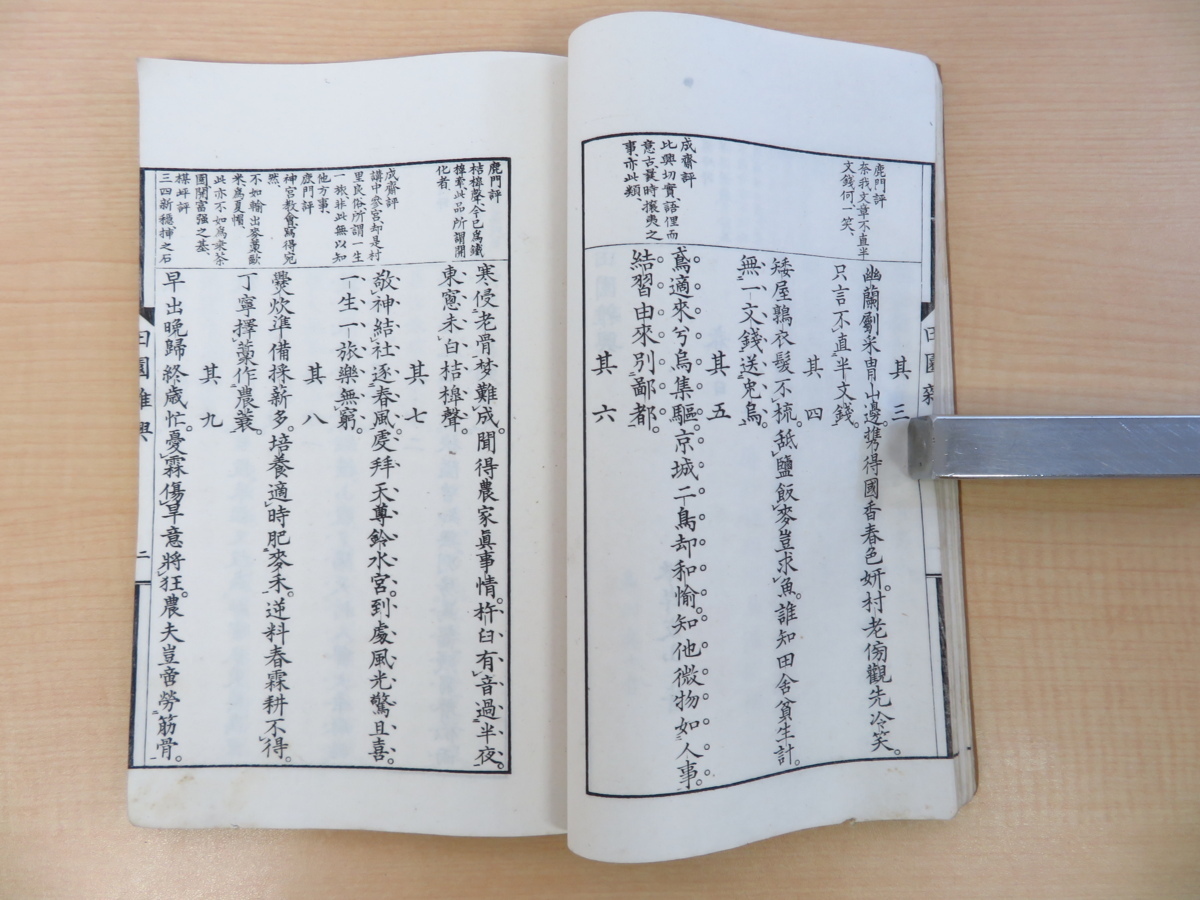 其三
幽蘭劚来冑山邊。携得國香春色妍。村老傍觀先冷笑。
只言不直半文錢。
其四
矮屋鶉衣髮不梳。舐鹽飯麥豈求魚。誰知田舍貧生計。
無一文錢送鬼烏。
其五
鳶適來兮烏集驅。京城二鳥却和愉。知他微物如人事。
結習由來別鄙都。
其六
鹿門評
奈我文章不直半
文錢何一笑、
成齋評
比興切實、語俚而
意古、黃時攘夷之
事亦此類、
寒侵老骨梦難成。聞得農家眞事情。杵臼有音過半夜。
東窻未白桔槹聲。
其七
敬神結社逐春風。虔拜天尊鈴水宮。到處風光驚且喜。
一生一旅樂無窮。
其八
爨炊準備採薪多。培養適時肥麥禾。逆料春霖耕不得。
丁寧擇藁作農蓑。
其九
早出晩歸終歳忙。憂霖傷旱意將狂。農夫豈啻勞筋骨。
鹿門評
桔槹聲、今已爲鐵
槹業、此品所謂開
化者、
成齋評
講中參宮、却是村
里民俗所謂一生
一旅非此無以知
他方事、
鹿門評
神宮教會寫得宛
然、
不如輸出麥藁歐
米爲夏帽、
此亦不如爲乘茶
園開富强之基、
楳坪評
三四新穩挿之石
田園雜興
二